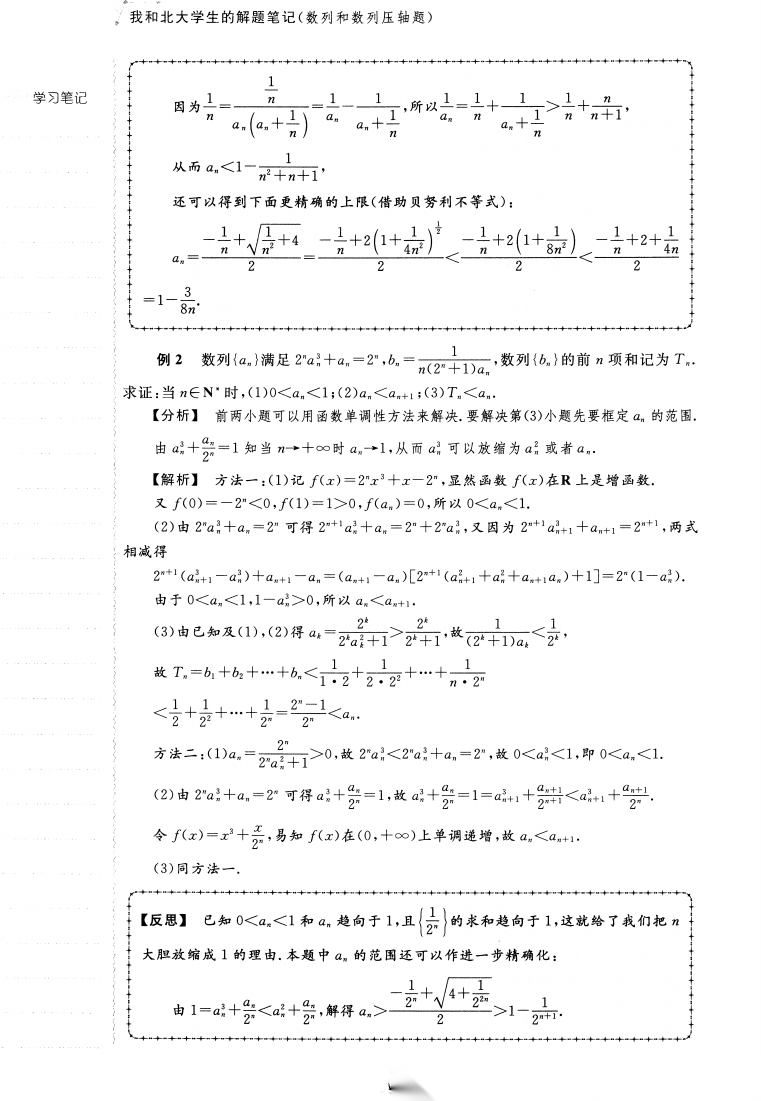 我和北大学生的解题笔记(数列和数列压轴题)
学习笔记
因为 1/n = (1/n)/(aₙ(aₙ+1/n)) = 1/aₙ − 1/(aₙ+1/n),所以 1/aₙ = 1/n + 1/(aₙ+1/n) > 1/n + n/(n+1),
从而 aₙ<1−1/(n²+n+1),
还可以得到下面更精确的上限(借助贝努利不等式):
aₙ = (−1/n+√(1/n²+4))/2 = (−1/n+2(1+1/(4n²))^(1/2))/2 < (−1/n+2(1+1/(8n²)))/2 < (−1/n+2+1/(4n))/2
=1−3/(8n).
例 2 数列{aₙ}满足 2ⁿaₙ³+aₙ=2ⁿ,bₙ=1/(n(2ⁿ+1)aₙ),数列{bₙ}的前 n 项和记为 Tₙ.
求证:当 n∈N* 时,(1)0<aₙ<1;(2)aₙ<aₙ₊₁;(3)Tₙ<aₙ.
【分析】 前两小题可以用函数单调性方法来解决.要解决第(3)小题先要框定 aₙ 的范围.
由 aₙ³+aₙ/2ⁿ=1 知当 n→+∞时 aₙ→1,从而 aₙ³ 可以放缩为 aₙ² 或者 aₙ.
【解析】 方法一:(1)记 f(x)=2ⁿx³+x−2ⁿ,显然函数 f(x)在R 上是增函数.
又 f(0)=−2ⁿ<0,f(1)=1>0,f(aₙ)=0,所以 0<aₙ<1.
(2)由 2ⁿaₙ³+aₙ=2ⁿ 可得 2ⁿ⁺¹aₙ³+aₙ=2ⁿ+2ⁿaₙ³,又因为 2ⁿ⁺¹aₙ₊₁³+aₙ₊₁=2ⁿ⁺¹,两式
相减得
2ⁿ⁺¹(aₙ₊₁³−aₙ³)+aₙ₊₁−aₙ=(aₙ₊₁−aₙ)[2ⁿ⁺¹(aₙ₊₁²+aₙ²+aₙ₊₁aₙ)+1]=2ⁿ(1−aₙ³).
由于 0<aₙ<1,1−aₙ³>0,所以 aₙ<aₙ₊₁.
(3)由已知及(1),(2)得 aₖ=2ᵏ/(2ᵏaₖ²+1)>2ᵏ/(2ᵏ+1),故 1/((2ᵏ+1)aₖ)<1/2ᵏ,
故 Tₙ=b₁+b₂+⋯+bₙ<1/(1·2)+1/(2·2²)+⋯+1/(n·2ⁿ)
<1/2+1/2²+⋯+1/2ⁿ=(2ⁿ−1)/2ⁿ<aₙ.
方法二:(1)aₙ=2ⁿ/(2ⁿaₙ²+1)>0,故 2ⁿaₙ³<2ⁿaₙ³+aₙ=2ⁿ,故 0<aₙ³<1,即 0<aₙ<1.
(2)由 2ⁿaₙ³+aₙ=2ⁿ 可得 aₙ³+aₙ/2ⁿ=1,故 aₙ³+aₙ/2ⁿ=1=aₙ₊₁³+aₙ₊₁/2ⁿ⁺¹<aₙ₊₁³+aₙ₊₁/2ⁿ.
令 f(x)=x³+x/2ⁿ,易知 f(x)在(0,+∞)上单调递增,故 aₙ<aₙ₊₁.
(3)同方法一.
【反思】 已知 0<aₙ<1 和 aₙ 趋向于 1,且{1/2ⁿ}的求和趋向于 1,这就给了我们把 n
大胆放缩成 1 的理由.本题中 aₙ 的范围还可以作进一步精确化:
由 1=aₙ³+aₙ/2ⁿ<aₙ²+aₙ/2ⁿ,解得 aₙ>(−1/2ⁿ+√(4+1/2²ⁿ))/2>1−1/2ⁿ⁺¹.